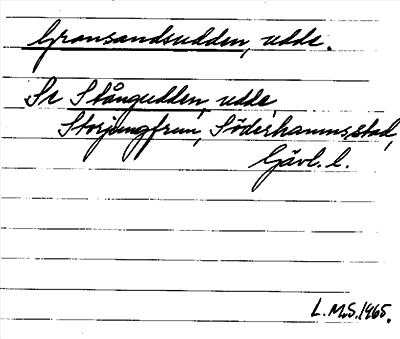 Gransandsudden, udde.
Se Stångudden, udde,
Storjungfrun, Söderhamns stad,
Gävl. l.
L.M.S. 1965.